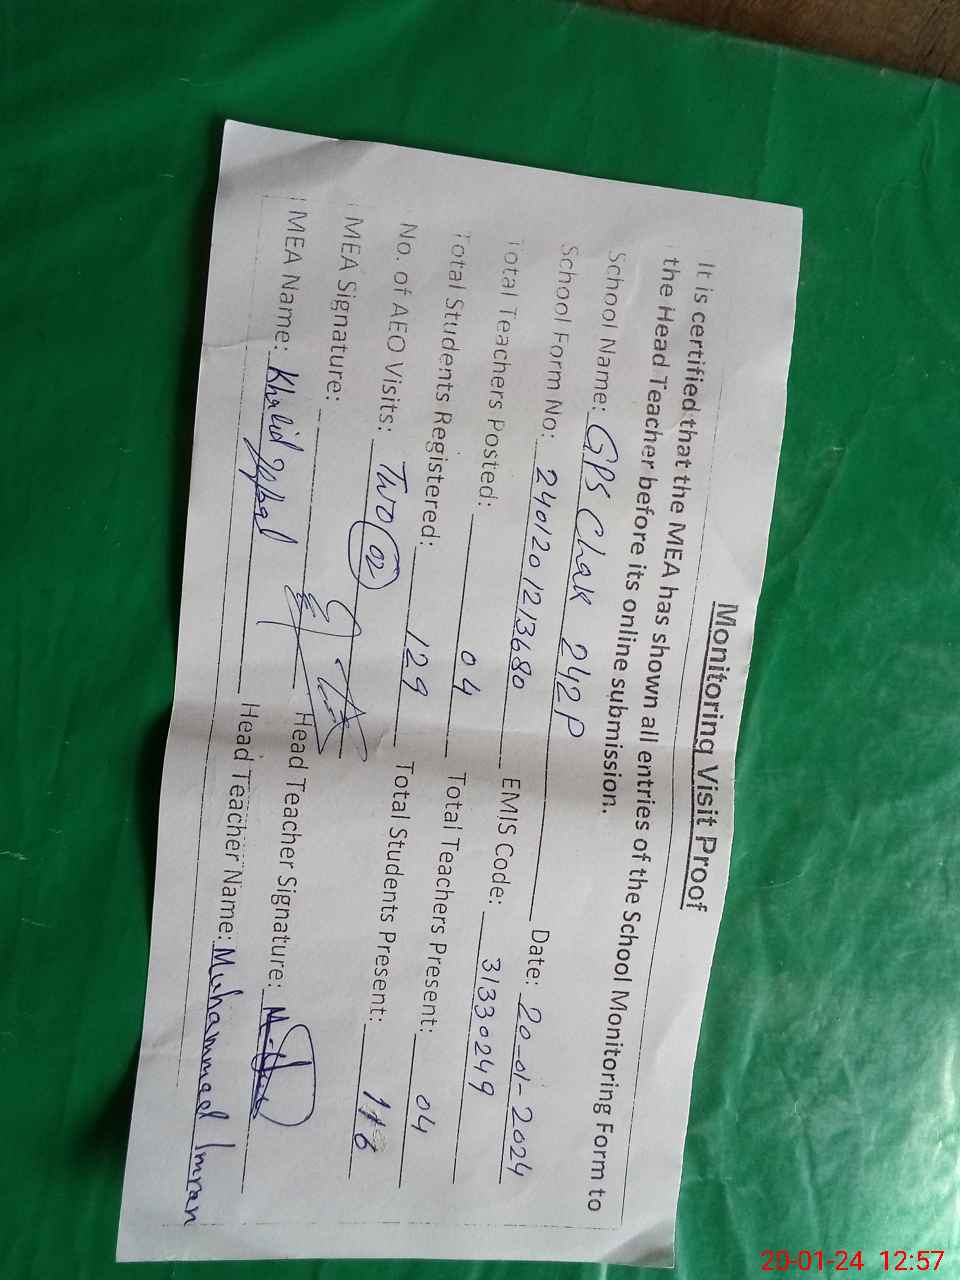 Monitoring Visit Proof
It is certified that the MEA has shown all entries of the School Monitoring Form to
the Head Teacher before its online submission.
School Name: GPS Chak 242P Date: 20-01-2024
School Form No: 2401201213680 EMIS Code: 31330249
Total Teachers Posted: 04 Total Teachers Present: 04
Total Students Registered: 129 Total Students Present:
No. of AEO Visits: Two (02)
MEA Signature: Head Teacher Signature:
MEA Name: Khalid Iqbal Head Teacher Name: Muhammad Imran
20-01-24 12:57